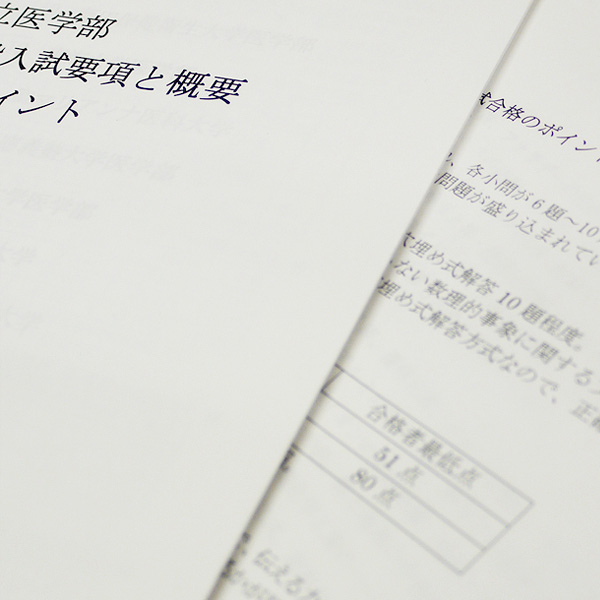 立医学部
入試要項と概要
イント
試合格のポイント
、各小問が6題～10
問題が盛り込まれてい
穴埋め式解答 10 題程度。
ない数理的事象に関する
埋め式解答方式なので、正確
合格者最低点
51 点
80 点
伝えるか